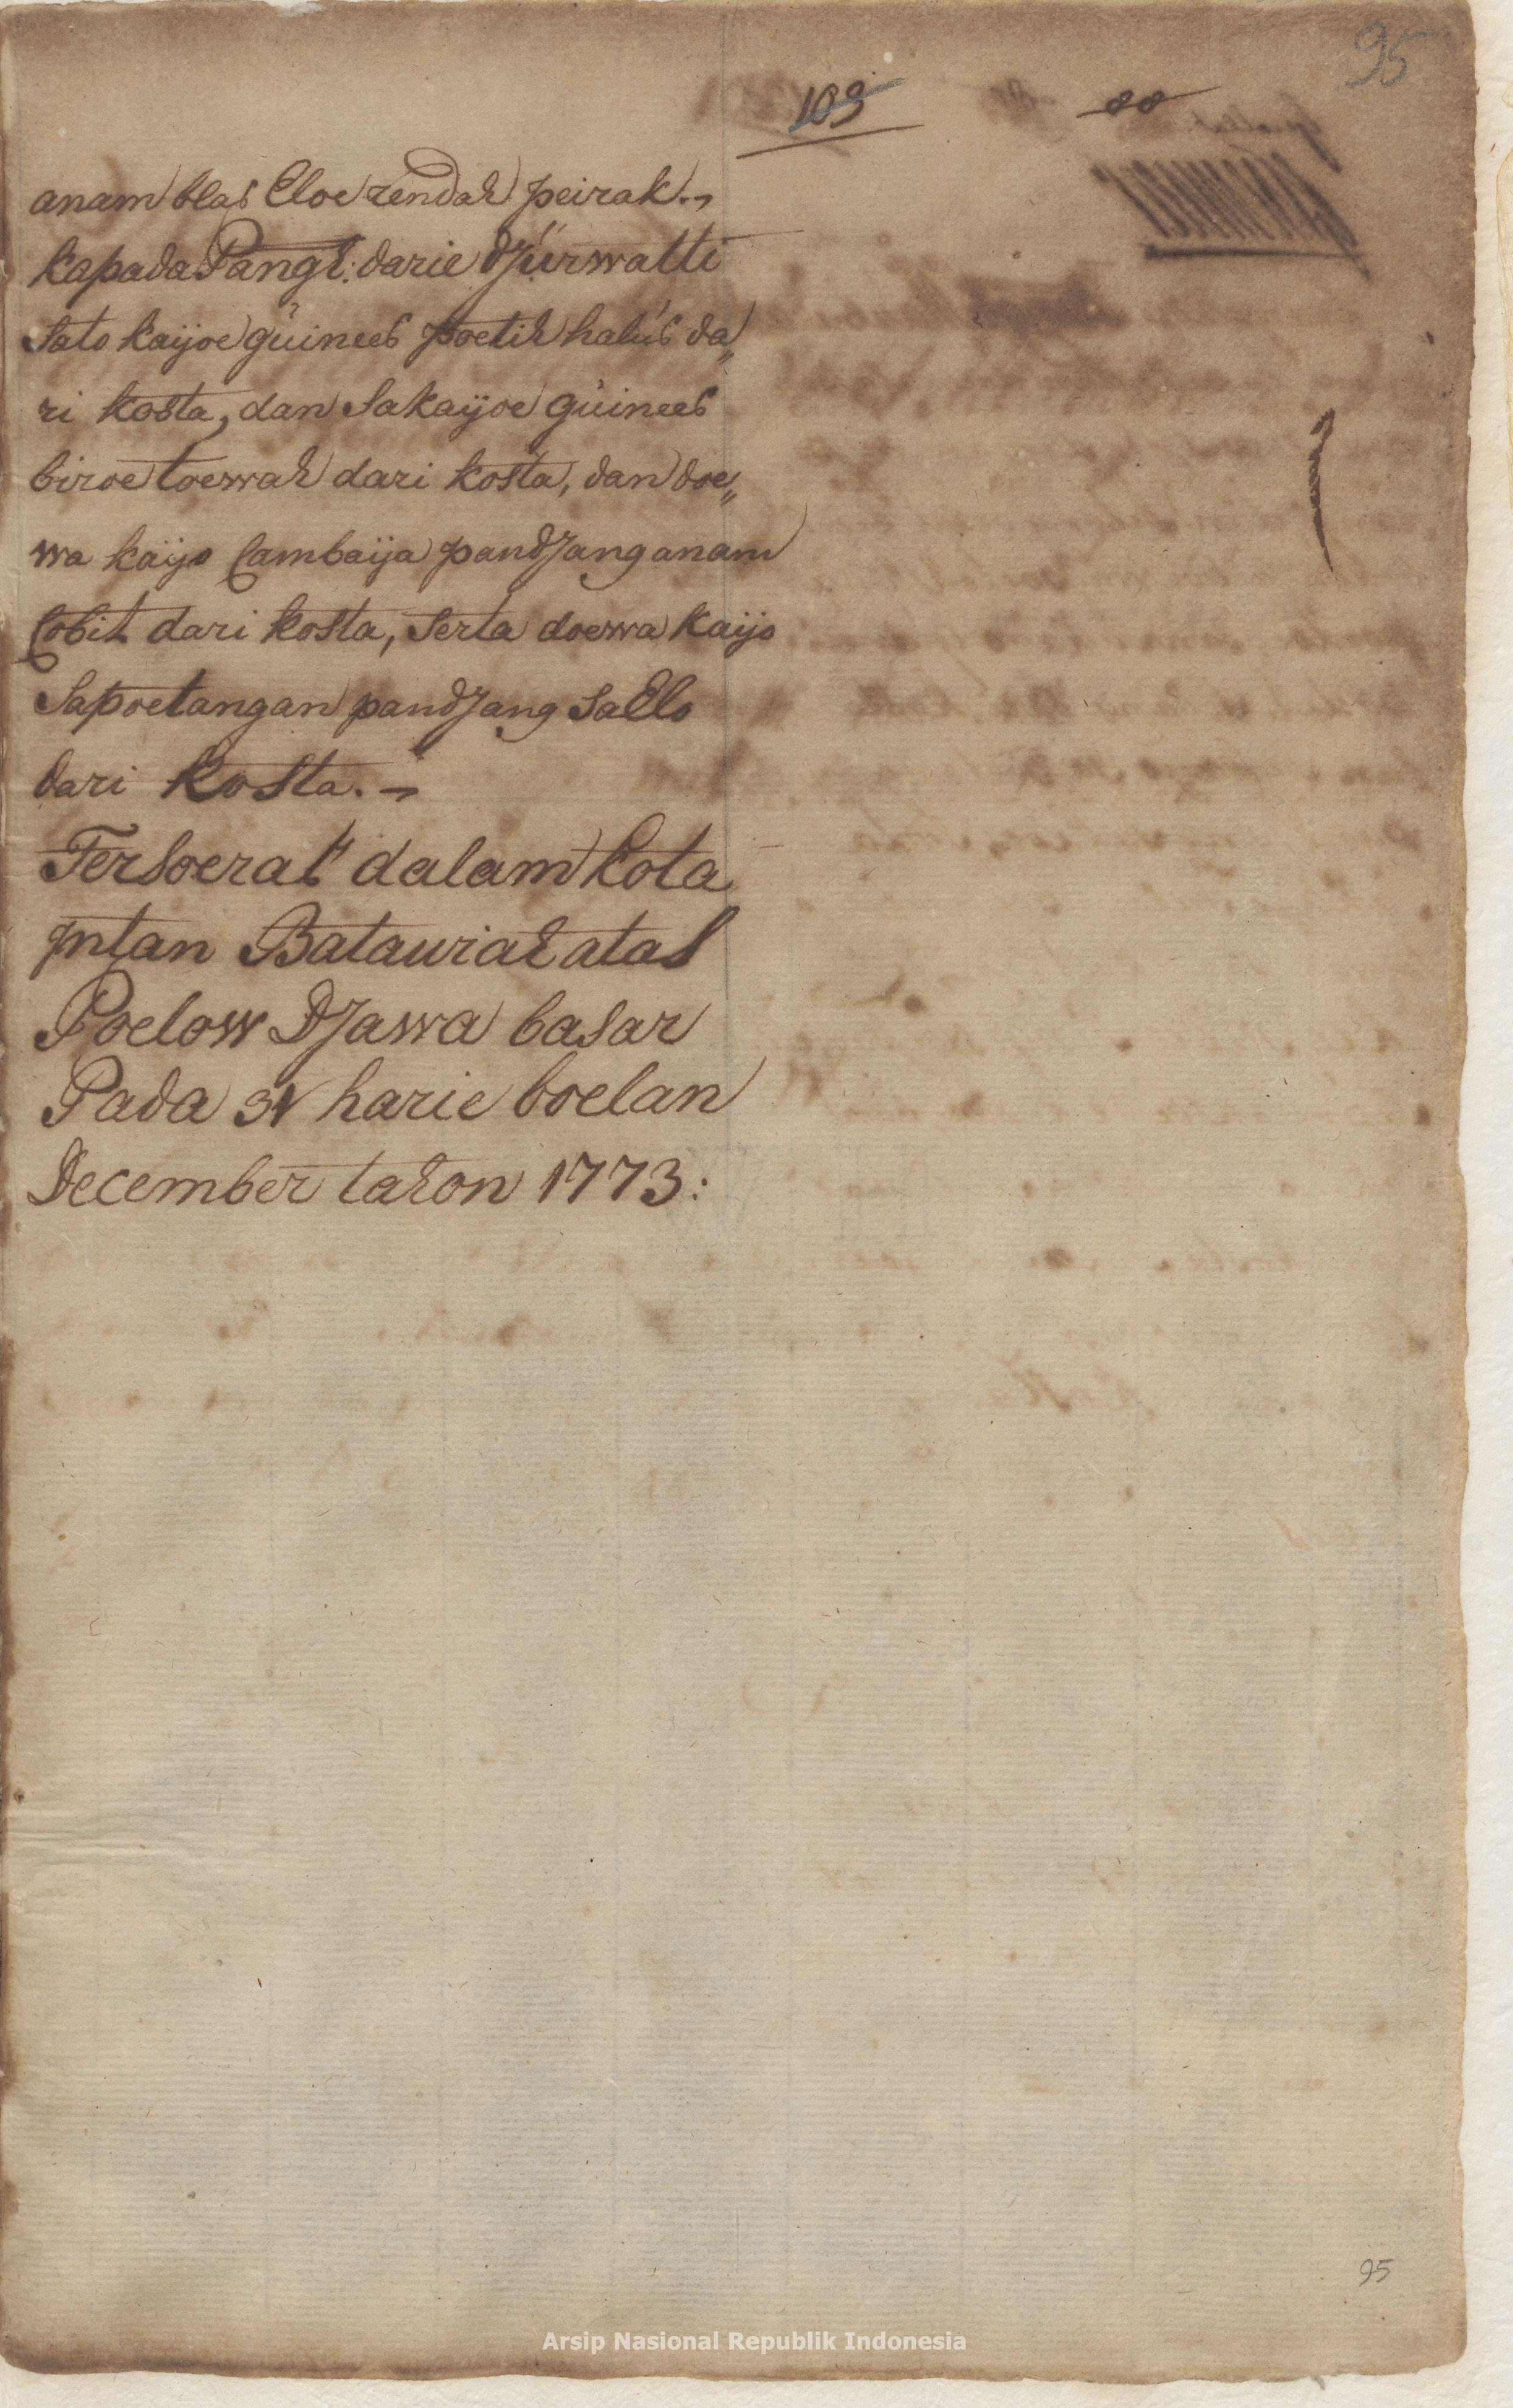 95
109
anam blas Eloe rendah peirak.
kapada Pangl: darie Djurwatti
Sato kaijoe guinees poetih halus da„
ri kosta, dan Sakaijoe guinees
biroe toewah dari kosta, dan doe„
wa kaijo Cambaija pandjang anam
Cobit dari kosta, Serta doewa kaijo
Sapoetangan pandjang Sa Elo
dari kosta.
Tersoerat dalam kota
jntan Batauwiah atas
Poelow Djawa basar
Pada 31 harie boelan
December tahon 1773:
95
Arsip Nasional Republik Indonesia